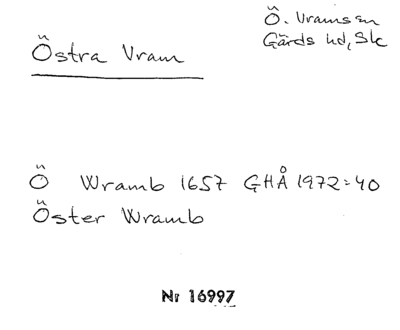 Östra Vram
Ö. Vrams sn
Gärds hd, Sk
Ö Wramb 1657 GHÅ 1972:40
Öster Wramb
Nr 16997